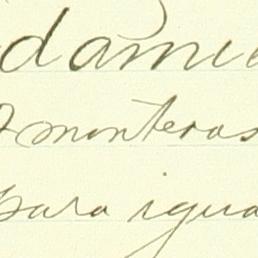 damie
monteras
para igua